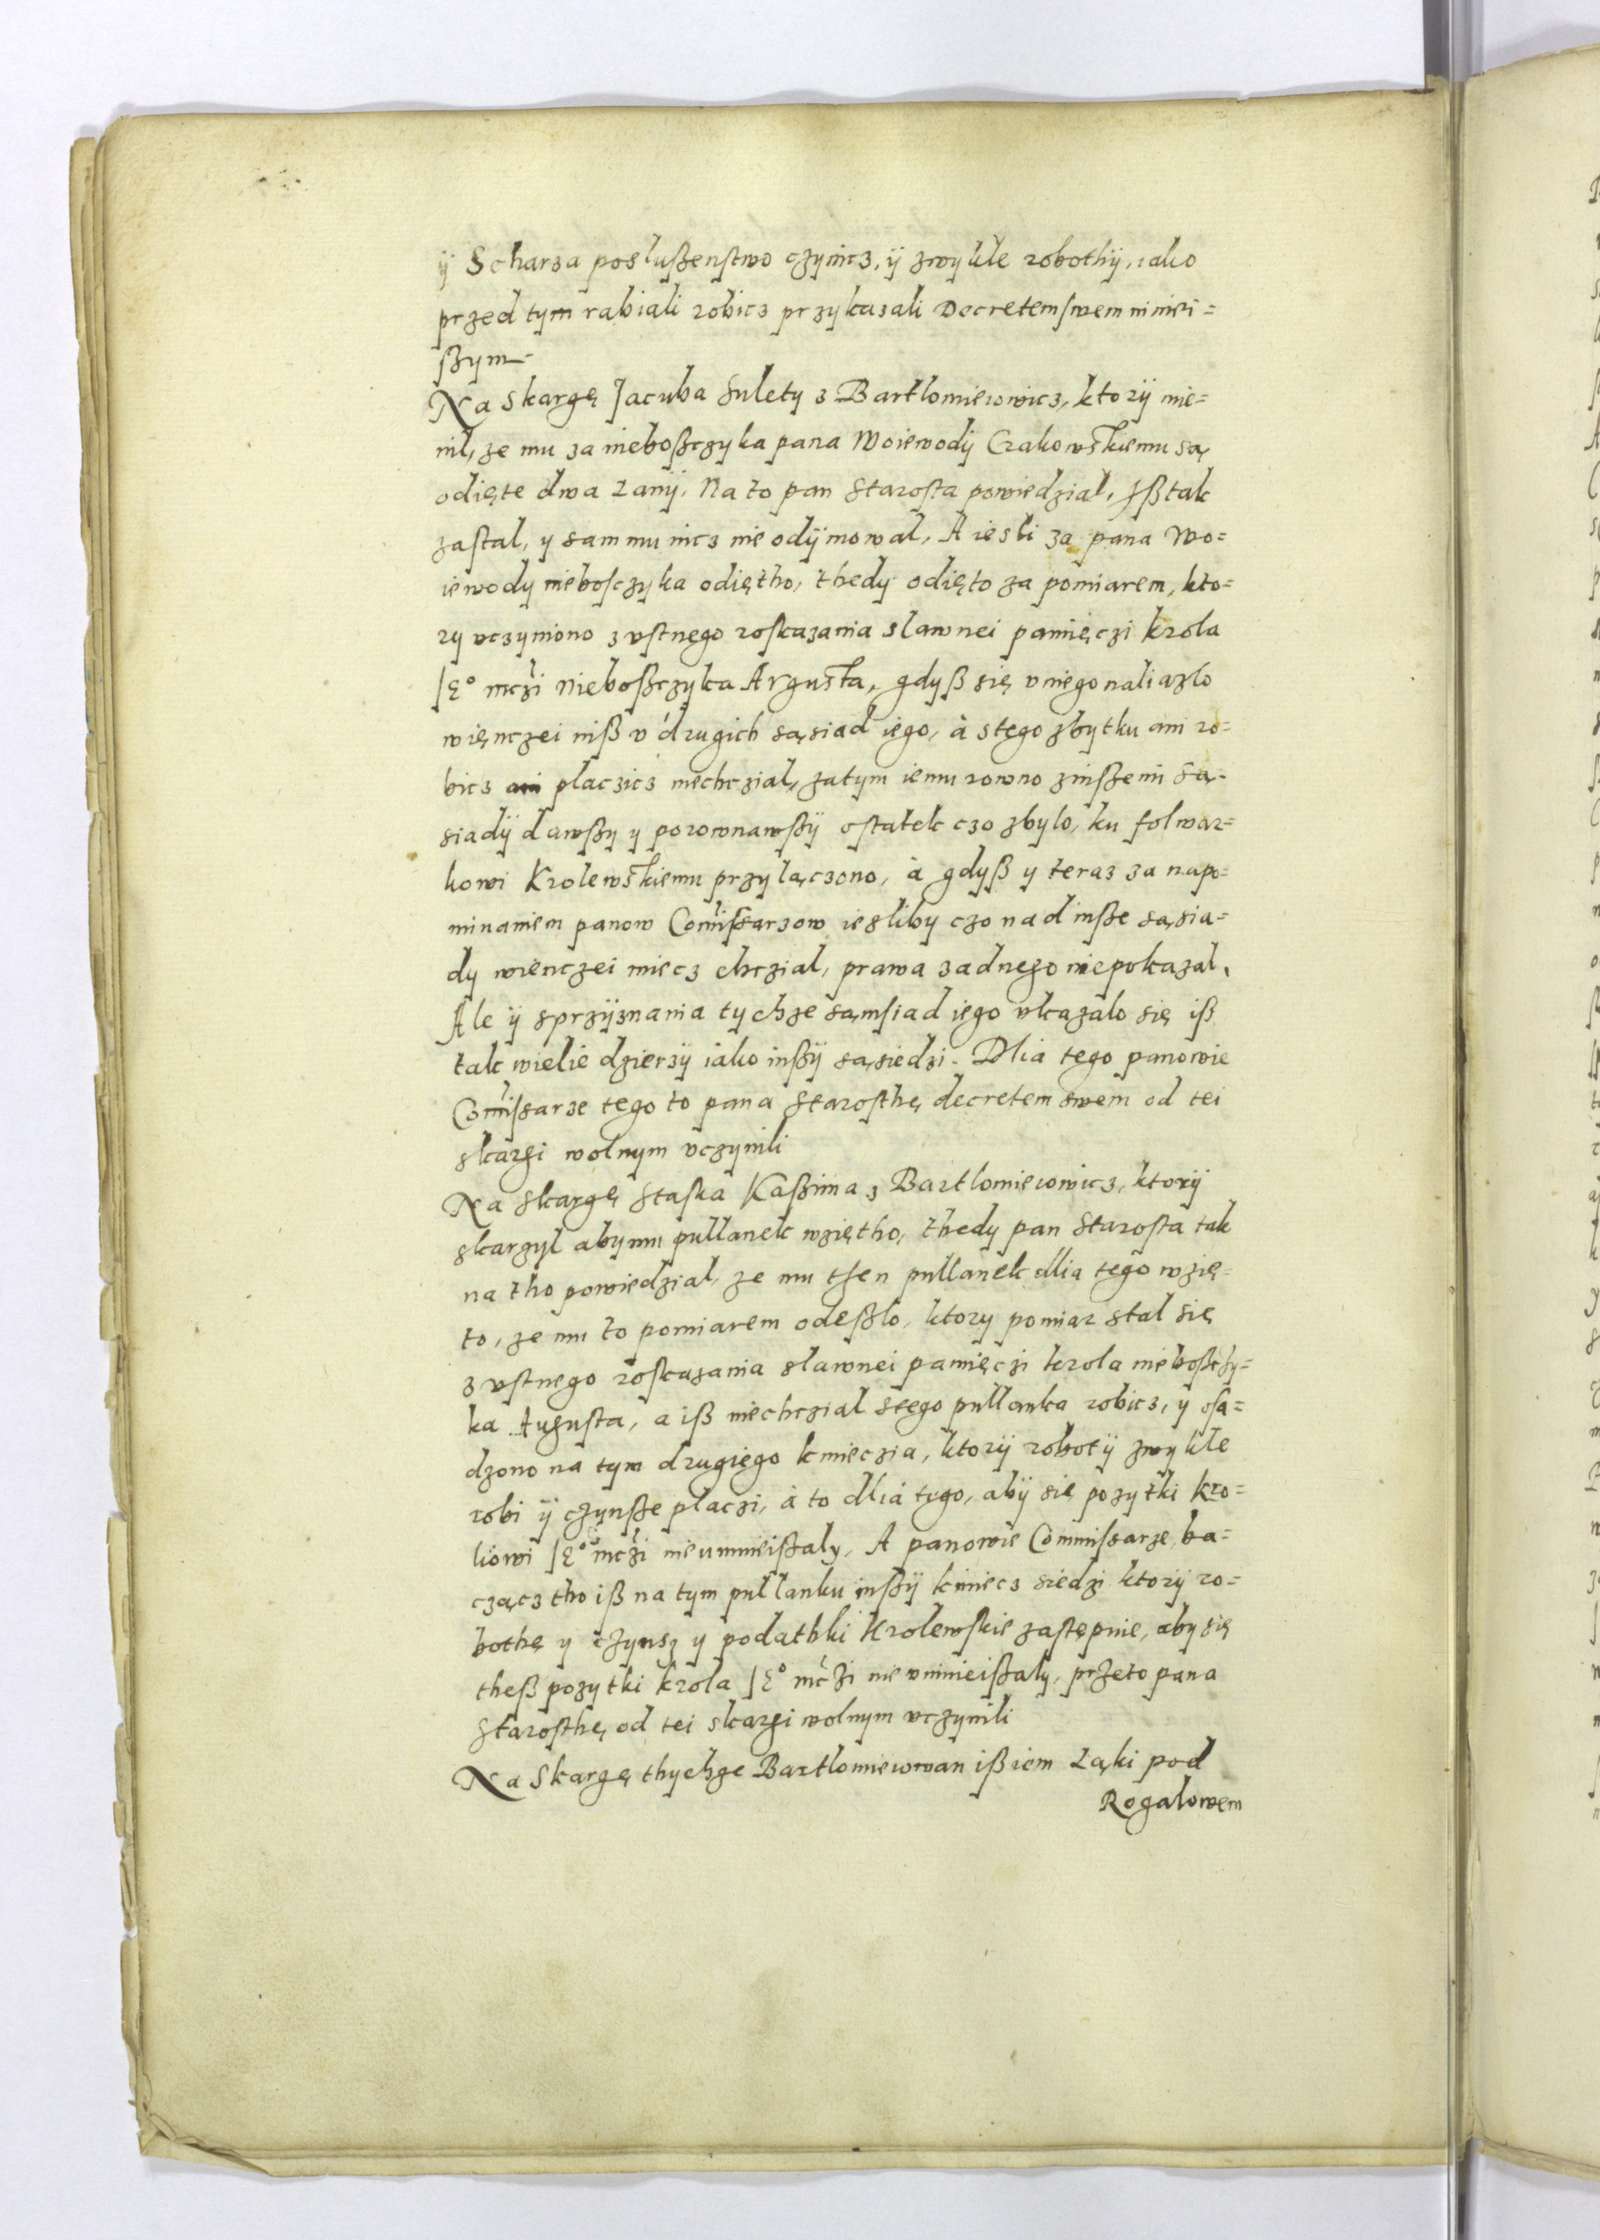 ÿ Scharza posłuszenstwo czynicz, ÿ zwykłe robothÿ, iako
przed tym rabiali robicz przykazali Decretem swem ninei=
szym
Na Skargę Jacuba Sulety z Bartlomiewowicz, ktorÿ mie=
nil, ze mu za nieboszczyka pana Woiewodÿ Crakowskiemu są
odięte dwa Lanÿ. Na to pan Starosta powiedzial, Isz tak
zastal, y sam mu nicz nie odÿmowal, A iesli za pana Wo=
iewody nieboszczyka odiętho, thedy odięto za pomiarem, kto=
ry uczyniono z ustnego roskazania slawnei pamięczi krola
JE° mczi Nieboszczyka Augusta, gdysz się v niego naliazlo
więnczei nisz v drugich sąsiad iego, à stego zbytku ani ro=
bicz ani placzicz niechczial, zatym iemu rowno zinszemi są=
siadÿ dawszy y porownawszÿ ostatek czo zbylo, ku folwar=
kowi Krolewskiemu przylączono, à gdysz y teraz za napo=
minaniem panow Comissarzow iesliby czo nad insze sąsia=
dy wienczei miecz chczial, prawa zadnego nie pokazal,
Ale ÿ sprzÿznania tychze sąmsiad iego vkazalo się isz
tak wielie dzierzÿ iako inszÿ sąsiedzi. Dlia tego panowie
Comissarze tego to pana Starosthę decretem swem od tei
skargi wolnym vczynili
Na Skargę Staska Kaszima z Bartlomiewowicz, ktorÿ
skarzyl aby mu pullanek wziętho, thedy pan Starosta tak
na tho powiedzial, ze mu then pullanek dlia tego wzię=
to, ze mu to pomiarem odeszlo, ktory pomiar stal się
z vstnego roskazania slawnei pamięczi krola nieboszczy=
ka Augusta, a isz niechczial stego pullanka robicz, y osa=
dzono na tym drugiego kmieczia, ktorÿ robotÿ zwykłe
robi ÿ czynsze placzi, à to dlia tego, abÿ się pozytki kro=
liowi JE° mczi nie umnieiszaly, A panowie Commissarze, ba=
cząncz tho isz na tym pullanku inszÿ kmiecz siedzi ktorÿ ro=
bothę y czynsz y podathki Krolewskie zastępuie, aby się
thesz pozytki krola JE° mczi nie vmnieiszaly, przeto pana
Starosthę od tei skargi wolnym vczynili
Na Skargę thychze Bartlomiewian isz iem Ląki pod
Rogalowem